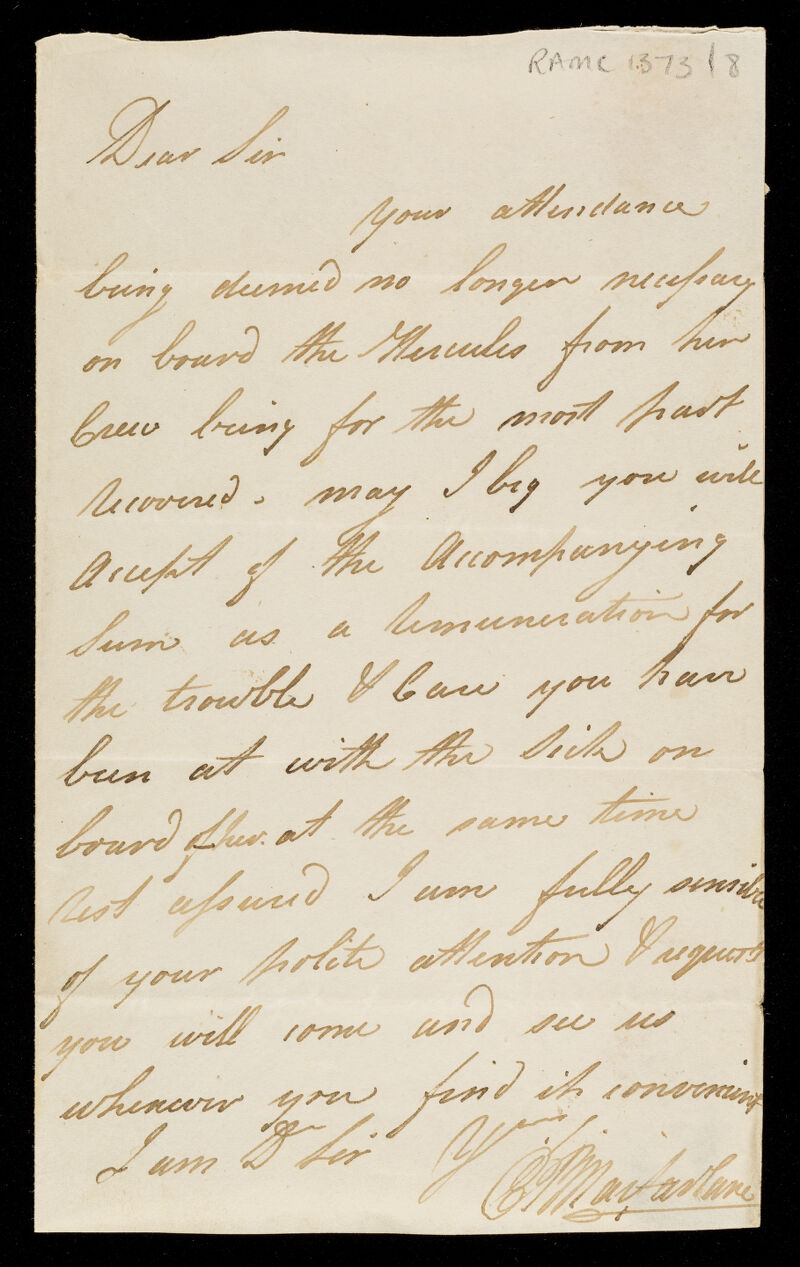 RAMC 1373/8
Dear Sir
Your attendance
being deemed no longer necessary
on board the Hercules from her
Crew being for the most part
recovered. may I beg you will
Accept of the Accompanying
Sum as a remuneration for
the trouble & Care you have
been at with the Sick on
board of her. at the same time
rest assured I am fully sensible
of your polite attention & request
you will come and see us
whenever you find it convenient
I am Dr Sir Yours
Macfarlane